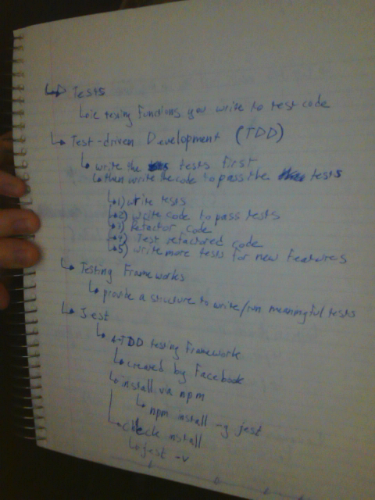 ↳ Tests
↳ ie testing functions you write to test code
↳ Test-driven Development (TDD)
↳ write the tests first
↳ then write the code to pass the tests
↳ 1) write tests
↳ 2) write code to pass tests
↳ 3) refactor code
↳ 4) Test refactored code
↳ 5) write more tests for new features
↳ Testing Frameworks
↳ provide a structure to write/run meaningful tests
↳ Jest
↳ TDD testing framework
↳ created by Facebook
↳ install via npm
↳ npm install -g jest
↳ check install
↳ jest -v